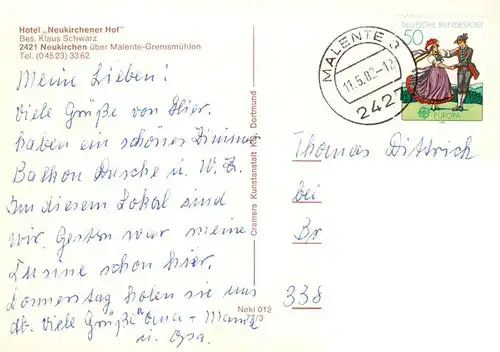 Hotel „Neukirchener Hof"
Bes. Klaus Schwarz
2421 Neukirchen über Malente-Gremsmühlen
Tel. (0 45 23) 33 62
Meine Lieben!
viele Grüße von Hier.
haben ein schönes Zimmer
Balkon Dusche u. W.
Im diesem Lokal sind
wir. Gestern war meine
schon hier.
Donnerstag holen sie uns
ab. viele Grüße Oma +
u. Opa.
Cramers Kunstanstalt KG, Dortmund
Neki 012
73/3
MALENTE
11.5.82-12
2427
DEUTSCHE BUNDESPOST
50
EUROPA
Thomas Dittrich
bei
Br
338